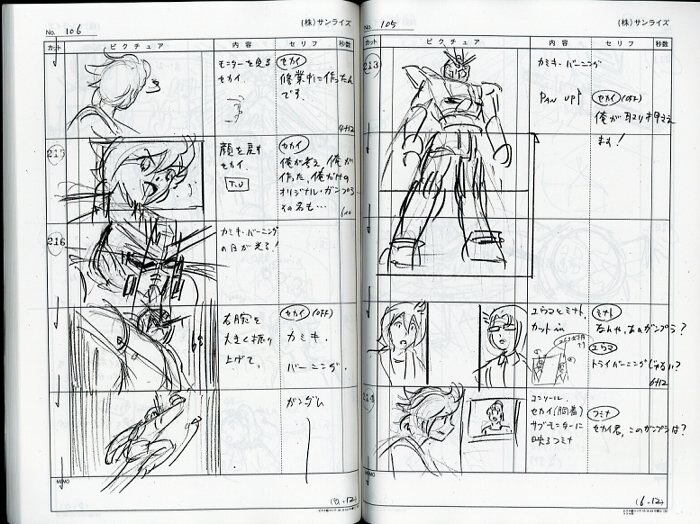 No. 106
(株)サンライズ
カット
ピクチュア
内容
セリフ
秒数
モニターを見る
セカイ.
セカイ
修業中に作ったん
です.
215
顔を戻す
セカイ.
T.U
セカイ
俺が考え、俺が
作った、俺だけの
オリジナル・ガンプラ
その名も…
6+0
216
カミキ・バーニング
の目が光る!
右腕を
大きく振り
上げて.
セカイ (OFF)
カミキ.
バーニング.
ガンダム
MEMO
No. 105
(株)サンライズ
カット
ピクチュア
内容
セリフ
秒数
213
カミキ・バーニング
PAN UP↑
セカイ (OFF)
俺が取り押さえ
ます!
ユウマとミナト、
カット in
ミナト
なんや、あのガンプラ?
ユウマ
トライバーニングじゃない?
6+12
214
コンソール.
セカイ(胸着)
サブモニターに
映るフミナ
フミナ
セカイ君、このガンプラは?
MEMO
(6+12)